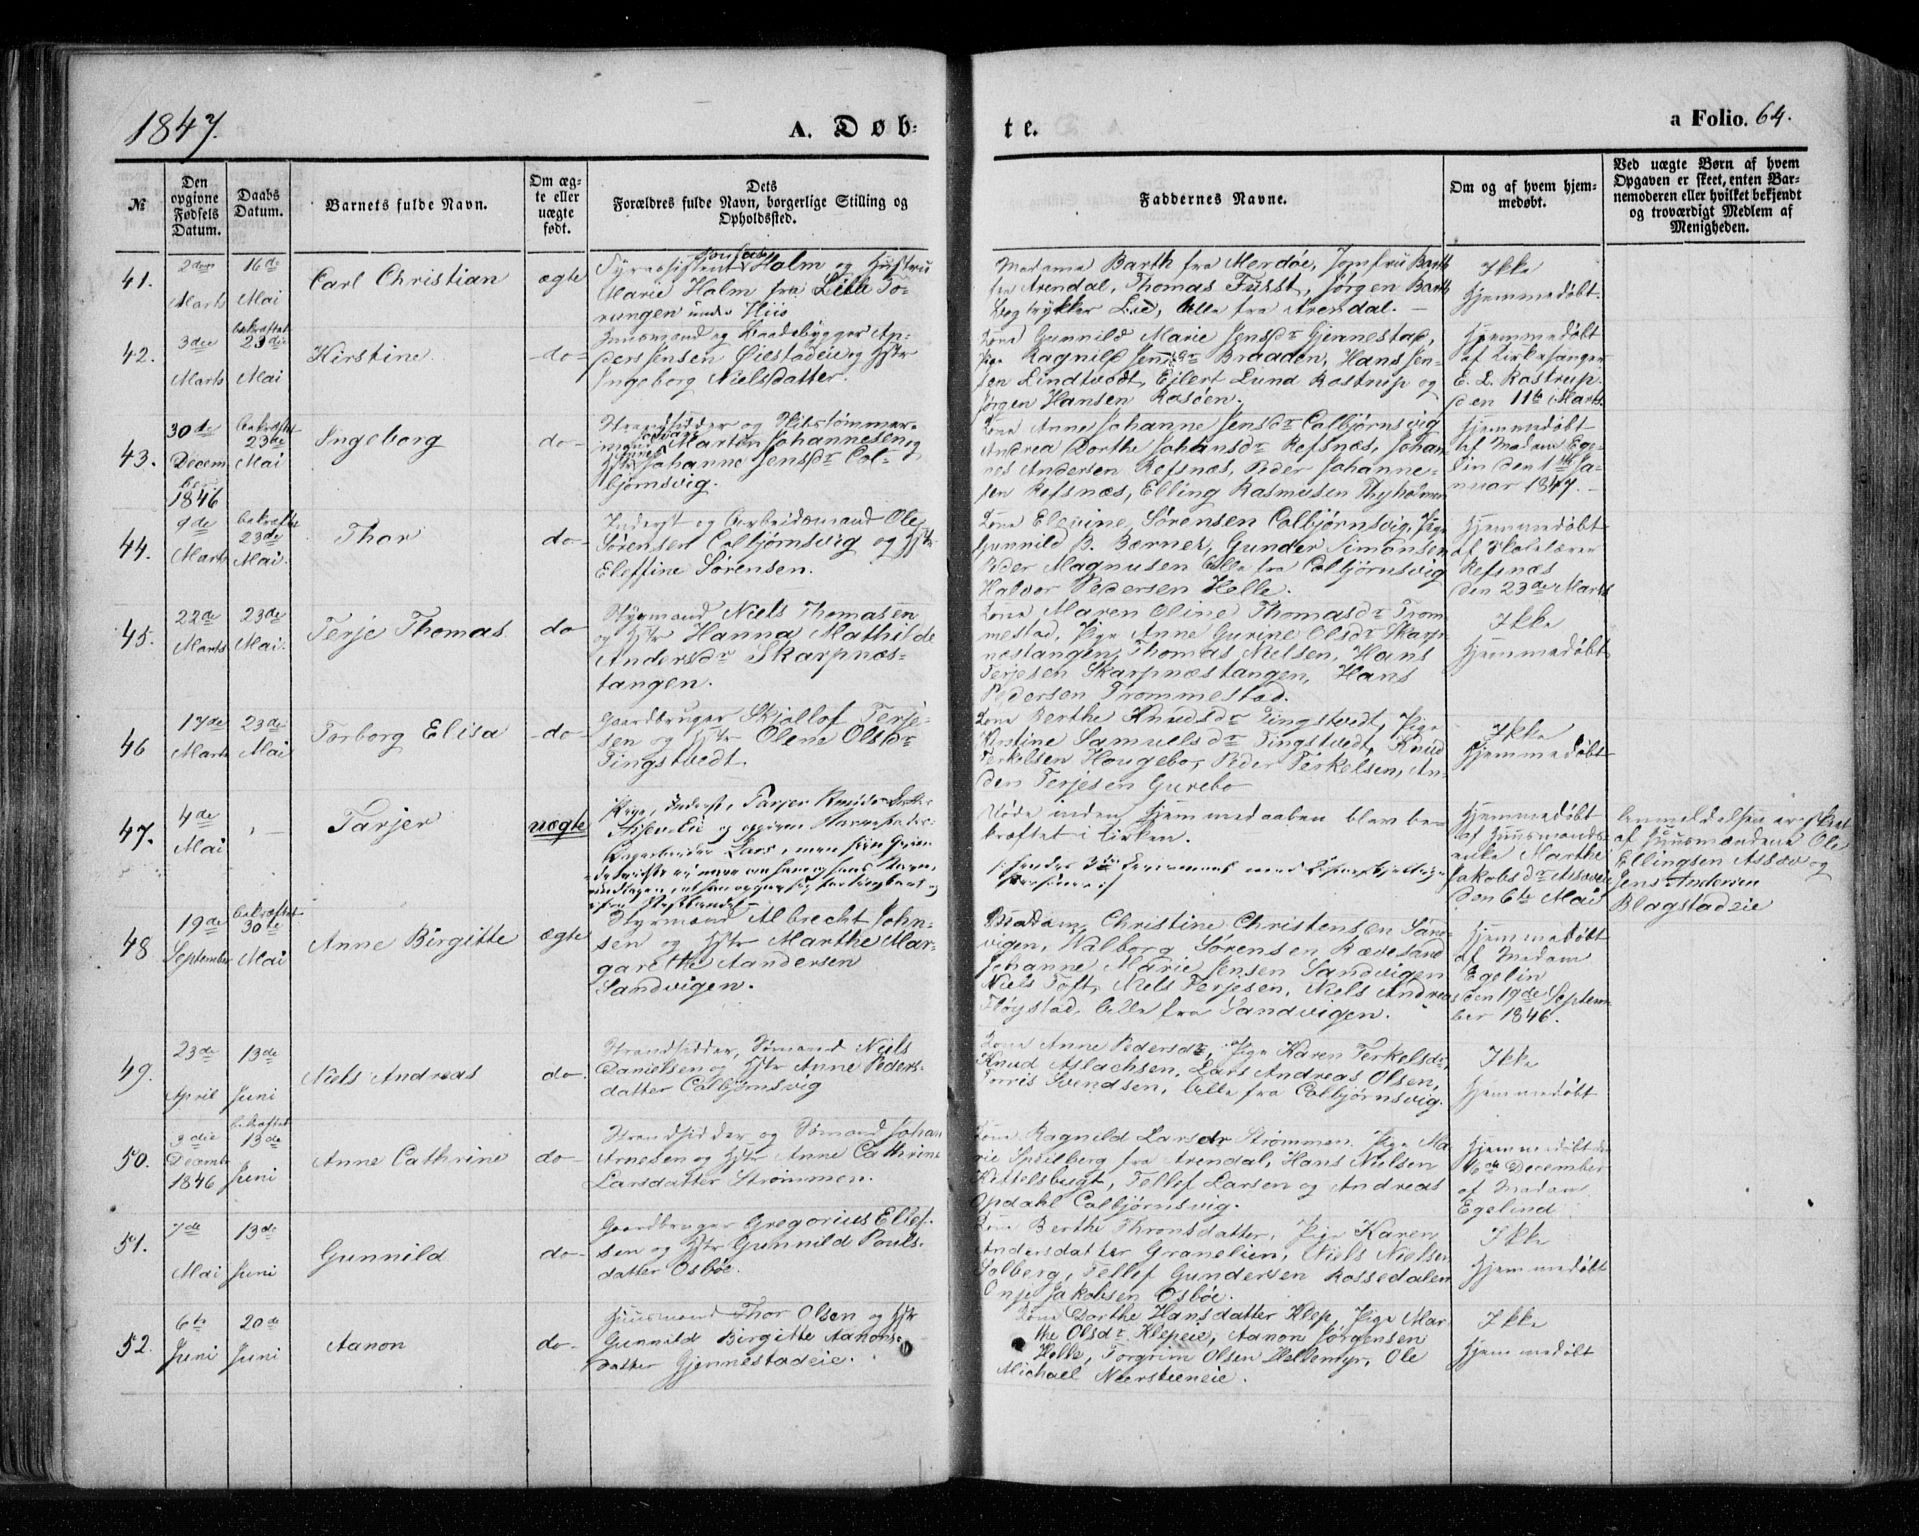 1847.
A. Døb-
te.
a Folio. 64.
№
Den opgivne Fødsels Datum.
Daabs Datum.
Barnets fulde Navn.
Om ægte eller uægte født.
Dets Forældres fulde Navn, borgerlige Stilling og Opholdssted.
Faddernes Navne.
Om og af hvem hjemmedøbt.
Ved uægte Børn af hvem Opgaven er skeet, enten Barnemoderen eller hvilket bekjendt og troværdigt Medlem af Menigheden.
41.
Marts
16de
Mai
Carl Christian
ægte
Holm og Hustru
Marie Holm fra Lille To-
rungen under Hiis
Madama Barth fra Merdöe, Jomfru Barth
fra Arendal, Thomas Fürst, Jörgen Barth
Bogtrykker Lie, Alle fra Arendal.
Ikke
Hjemmedøbt.
42.
3die
Marts
bekræftet
23die
Mai
Kirstine
do
Huusmand og Baadebygger An-
ders Jensen Öiestadeie og Hstr
Ingeborg Nielsdatter.
Kona Gunnild Marie Jensdr Gjennestad,
Pige Ragnild Jensdr Braaden, Hans Jen-
sen Lindtvedt, Ejlert Lund Rostrup og
Jörgen Hansen Rosöen.
Hjemmedøbt
af Kirkesanger
E. L. Rostrup
den 11te Marts
43.
30de
Decem
ber
1846
bekræftet
23de
Mai
Ingeborg
do
Strandsidder og Skibstömmer-
mand Morten Johannesen og
Hstr Johanne Jensdr Col-
bjørnsvig.
Kona Anne Johanne Jensdr Colbjørnsvig
Andrea Dorthe Johansdr Refsnæs, Johan-
nes Andersen Refsnæs, Peder Johanne-
sen Refsnæs, Elling Rasmusen Thyholmen
Hjemmedøbt
af Madam Ege-
lin den 1ste Ja-
nuar 1847.
44.
9de
Marts
bekræftet
23de
Mai.
Thor
do
Inderst og Arbeidsmand Ole
Sörensen Colbjørnsvig og Hstr
Eleftine Sörensen.
Kona Elevine Sörensen Colbjørnsvig, Pige
Gunnild B. Berner, Gunder Simonsen
Peder Magnusen Alle fra Colbjørnsvig
Halvor Pedersen Helle.
Hjemmedøbt
af Skolelærer
Refsnæs
den 23de Marts
45.
22de
Marts
23de
Mai.
Terje Thomas
do
Styrmand Niels Thomasen
og Hstr Hanna Mathilde
Andersdr Skarpnæs-
tangen.
Kona Maren Oline Thomasdr Trom-
mestad, Pige Anne Gurine Olsdr Skarp-
næstangen, Thomas Nielsen, Hans
Terjesen Skarpnæstangen, Hans
Pedersen Trommestad.
Ikke
Hjemmedøbt
46
17de
Marts
23de
Mai
Torborg Elisa
do
Gaardbruger Skjallof Terje-
sen og Hstr Olene Olsdr
Tingstvedt.
Kona Berthe Knudsdr Tingstvedt, Pige
Kirstine Samuelsdr Tingstvedt, Knud
Terkelsen Hougebo, Peder Terkelsen, An-
ders Terjesen Gurebo
Ikke
Hjemmedøbt
47.
4de
Mai
Tarjer
uægte
Pige, Inderst,
men hun
Uden inden Hjemmedaaben blev be-
kræftet i Kirken.
Hjemmedøbt
af Huusmands
enke Marthe
Jakobsdr Assævei
den 6te Mai
Anmeldelsen er skeet
af Huusmændene Ole
Ellingsen Assæv og
Jens Andersen
Blagstadeie
48
19de
September
bekræftet
30te
Mai
Anne Birgitte
ægte
Styrmand Albrecht John-
sen og Hstr Marthe Mar-
garethe Aandersen
Sandvigen.
Madam Christine Christensen Sand-
vigen, Walborg Sørensen Rævesand
Johanne Marie Jensen Sandvigen
Niels Toft, Niels Terjesen, Niels Andreas
Fløystad, Alle fra Sandvigen.
Hjemmedøbt
af Madam
Egelin
den 19de Septem-
ber 1846.
49.
23de
April
13de
Juni
Niels Andreas
do.
Strandsidder, Sømand Niels
Danielsen og Hstr Anne Peders-
datter Colbjørnsvig
Kona Anne Pedersdr, Pige Karen Terkelsdr,
Knud Aslachsen, Lars Andreas Olsen,
Torris Svendsen, Alle fra Colbjørnsvig.
Ikke
Hjemmedøbt
50.
3die
Decembr
1846
bekræftet
13de
Juni
Anne Cathrine
do
Strandsidder og Sømand Johan
Arnesen og Hstr Anne Cathrine
Larsdatter Strømmen.
Kona Ragnild Larsdr Strømmen. Pige Ma-
rie Spilberg fra Arendal, Hans Nielsen
Kittelsbugt, Tellef Larsen og Andreas
Opdahl Colbjørnsvig.
Hjemmedøbt den
6de December
af Madam
Egelind
51.
7de
Mai
13de
Juni
Gunnild
do
Gaardbruger Gregorius Ellef-
sen og Hstr Gunnild Pouls-
datter Osböe.
Kona Berthe Thronsdatter, Pige Karen
Andersdatter Granelien, Niels Nielsen
Solberg, Tellef Gundersen Rossedalen
Onje Jakobsen Osböe.
Ikke
Hjemmedøbt
52.
6te
Juni
20de
Juni
Aanon
do
Huusmand Thor Olsen og Hstr
Gunnild Birgitte Aanons-
datter Gjennestadeie.
Kona Dorthe Hansdatter Klep, Pige Mar-
the Olsdr Klepeie, Aanon Jørgensen
Helle, Torgrim Olsen Hellemyr, Ole
Michael Neerstteneie.
Ikke
Hjemmedøbt